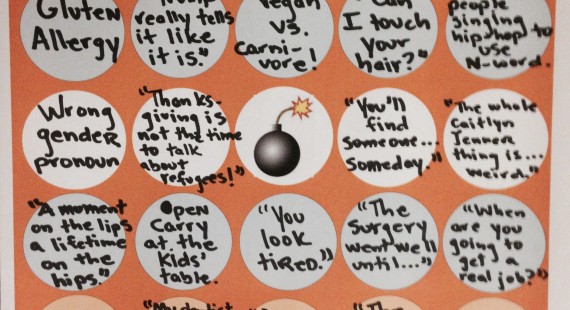 Gluten
Allergy
"Trump
really tells
it like
it is."
Vegan
vs.
Carni-
vore!
"Can
I touch
your
hair?"
people
singing
hip hop to
use
N-word.
Wrong
gender
pronoun
"Thanks-
giving is
not the time
to talk
about
refugees!"
"You'll
find
someone...
someday."
"The whole
Caitlyn
Jenner
thing is...
weird."
"A moment
on the lips
a lifetime
on the
hips."
Open
Carry
at the
Kids'
table.
"You
look
tired."
"The
Surgery
went well
until..."
"When
are you
going to
get a
real job?"